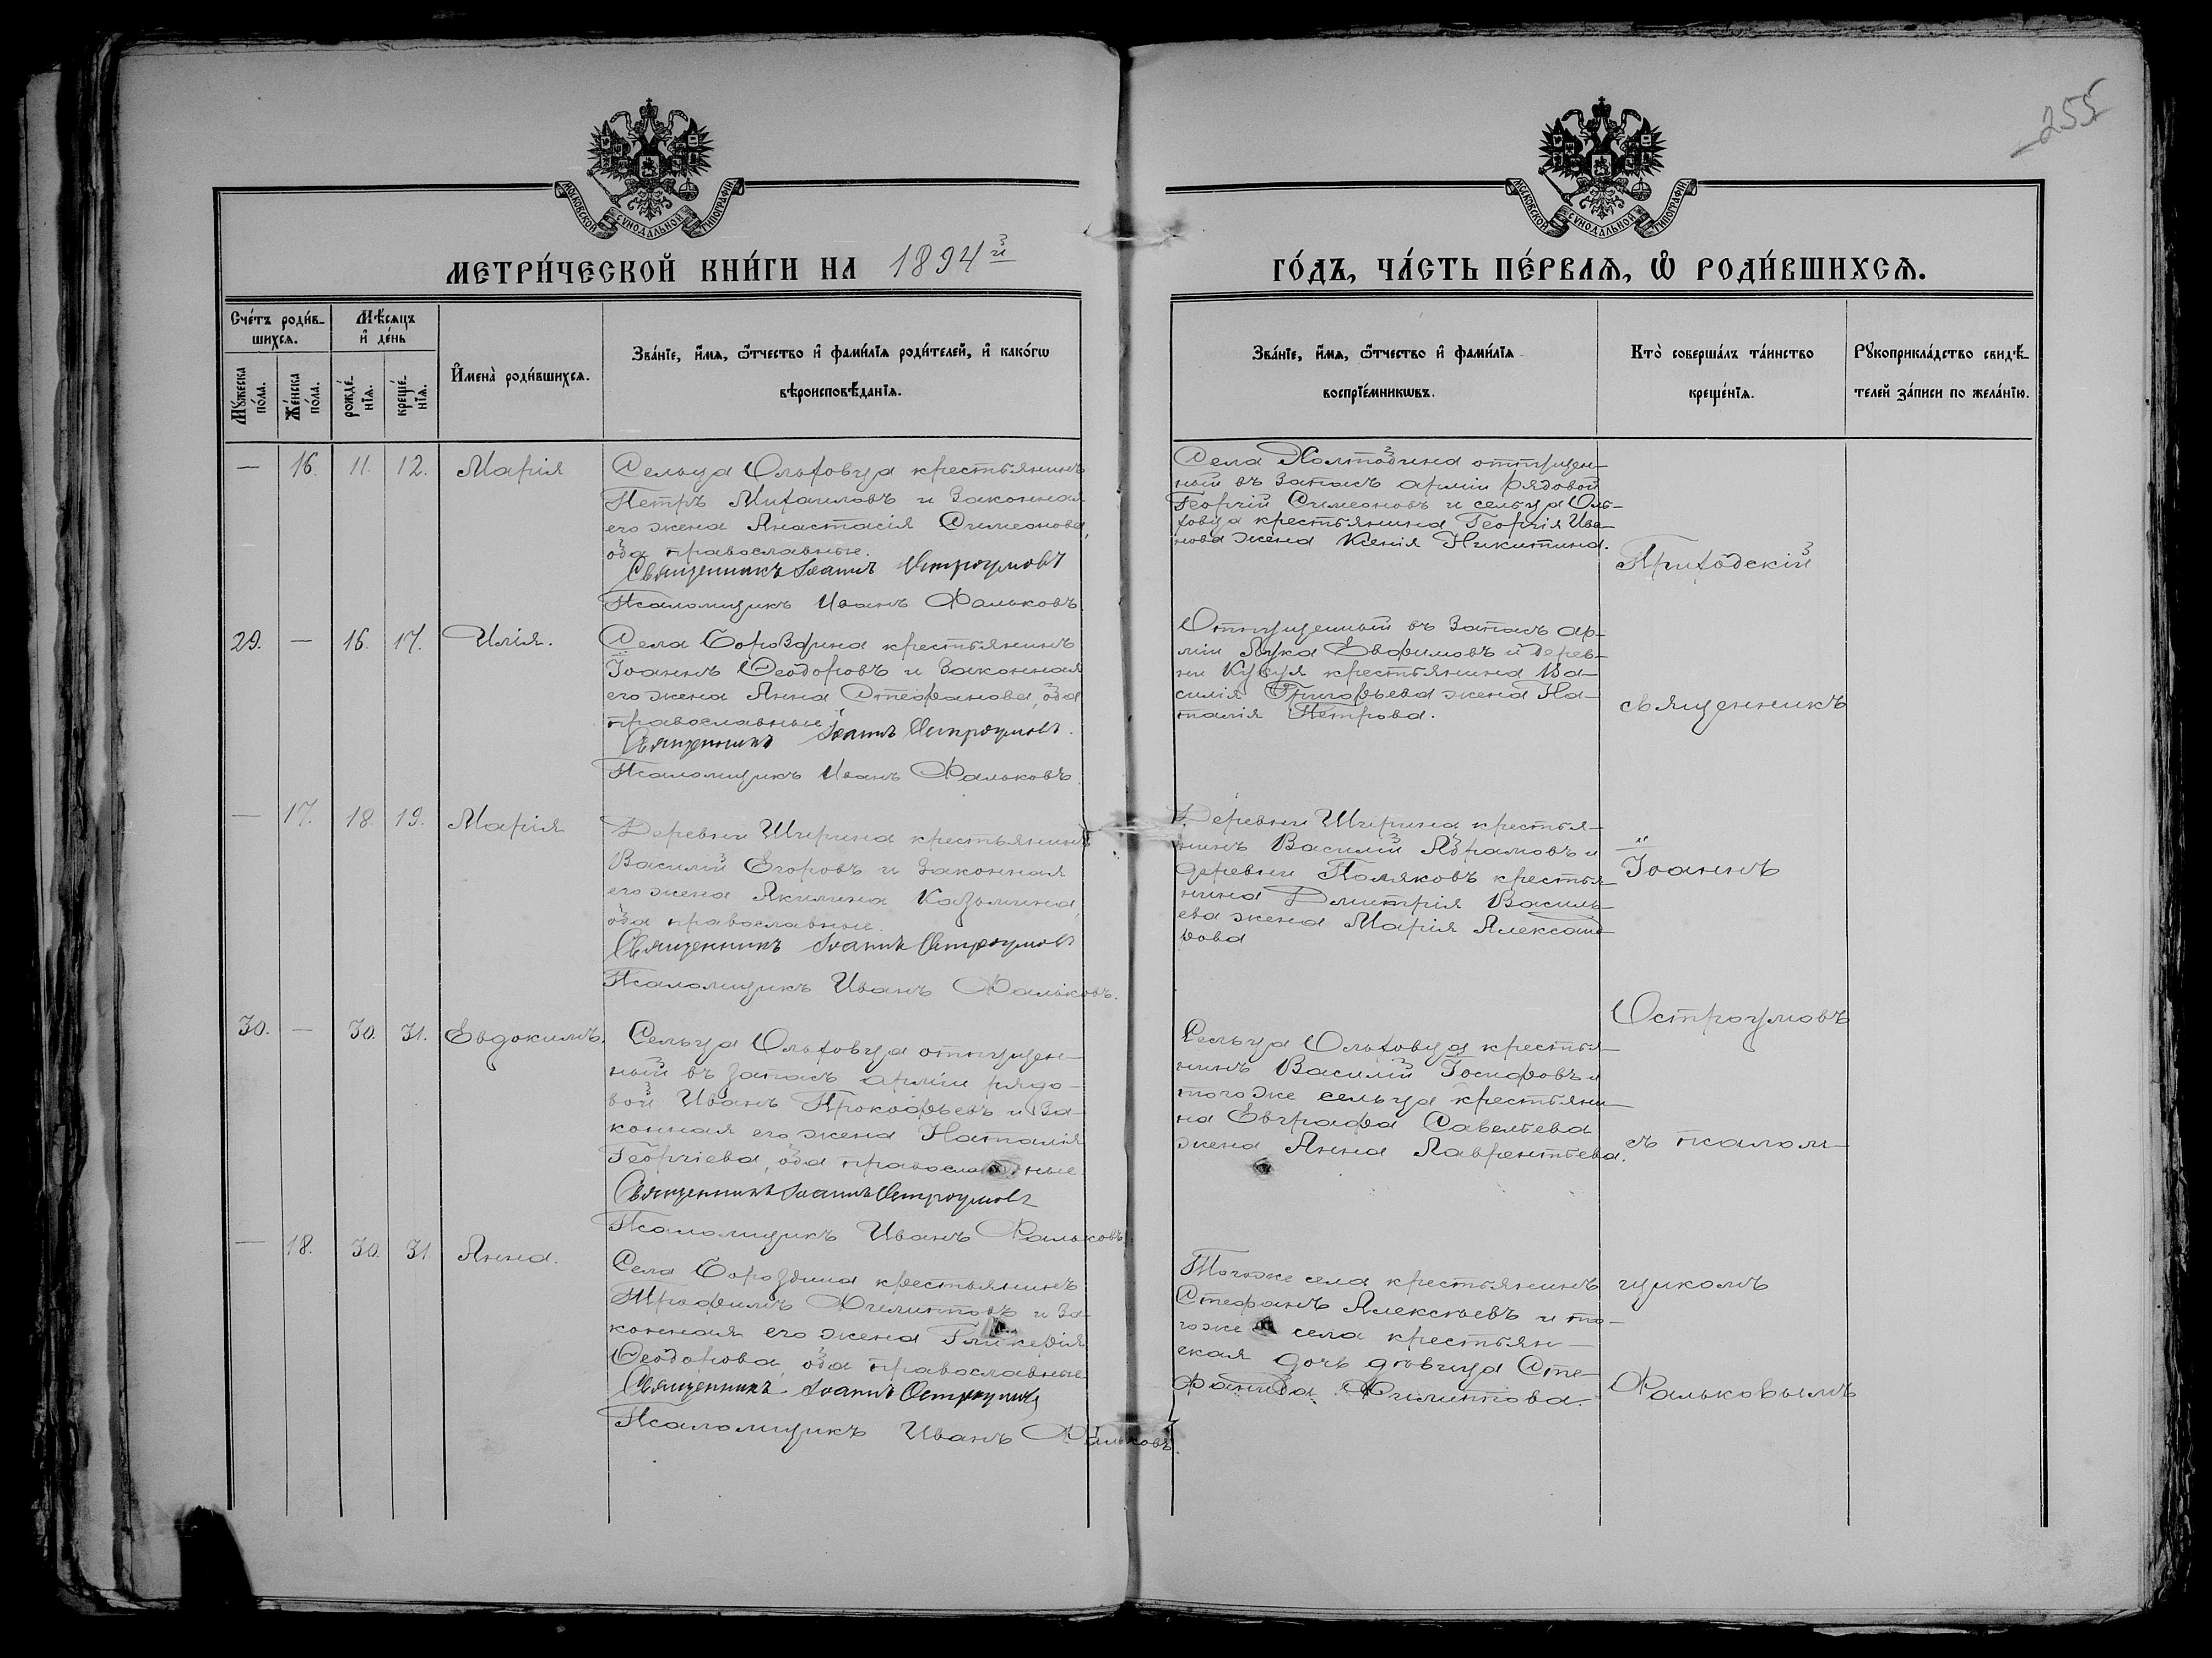 255
МОСКОВСКОЙ СѴНОДАЛЬНОЙ ТИПОГРАФІИ
МОСКОВСКОЙ СѴНОДАЛЬНОЙ ТИПОГРАФІИ
МЕТРИ́ЧЕСКОЙ КНИ́ГИ НА 1894й
ГО́ДЪ, ЧА́СТЬ ПЕ́РВАѦ, Ѡ РОДИ́ВШИХСѦ.
Сче́тъ роди́в-
шихсѧ.
Мѣ́сѧцъ
и҆ де́нь
Мꙋ́жеска
по́ла.
Же́нска
по́ла.
рожде́-
нїѧ.
креще́-
нїѧ.
И҆мена̀ роди́вшихсѧ.
Зва́нїе, и҆́мѧ, ѻ҆́тчество и҆ фами́лїѧ роди́телей, и҆ како́гѡ
вѣроисповѣ́данїѧ.
Зва́нїе, и҆́мѧ, ѻ҆́тчество и҆ фами́лїѧ
воспрїе́мникѡвъ.
Кто̀ соверша́лъ та́инство
креще́нїѧ.
Рꙋкоприкла́дство свидѣ́-
телей за́писи по жела́нїю.
— 16. 11. 12. Марія
Сельца Ольховца крестьянинъ
Петръ Михаиловъ и законная
его жена Анастасія Симеонова,
оба православные.
Священникъ Іоаннъ Остроумовъ
Псаломщикъ Иванъ Фальковъ
Села Холтобина отпущен-
ный въ запасъ арміи рядовой
Георгій Симеоновъ и сельца Оль-
ховца крестьянина Георгія Ива-
нова жена Ксенія Никитина.
Приходскій
29. — 16. 17. Илія.
Села Бороздина крестьянинъ
Іоаннъ Ѳеодоровъ и законная
его жена Анна Стефанова, оба
православные.
Священникъ Іоаннъ Остроумовъ.
Псаломщикъ Иванъ Фальковъ.
Отпущенный въ запасъ ар-
міи Лука Евфимовъ и дерев-
ни крестьянина Ва-
силія Григорьева жена На-
талія Петрова.
священникъ
— 17. 18. 19. Марія
Деревни Ширина крестьянинъ
Василій Егоровъ и законная
его жена Акилина Казьмина,
оба православные.
Священникъ Іоаннъ Остроумовъ
Псаломщикъ Иванъ Фальковъ.
Деревни Ширина крестья-
нинъ Василій Абрамовъ и
деревни Поляковъ крестья-
нина Дмитрія Василь-
ева жена Марія Александ-
рова
Іоаннъ
Остроумовъ
30. — 30. 31. Евдокимъ.
Сельца Ольховца отпущен-
ный въ запасъ арміи рядо-
вой Иванъ Прокофьевъ и за-
конная его жена Наталія
Георгіева, оба православные.
Священникъ Іоаннъ Остроумовъ
Псаломщикъ Иванъ Фальковъ.
Сельца Ольховца крестья-
нинъ Василій Іосифовъ и
тогоже сельца крестьяни-
на Евграфа Савельева
жена Анна Лаврентьева.
съ псалом-
— 18. 30. 31. Анна.
Села Бороздина крестьянинъ
Трофимъ Филипповъ и за-
конная его жена Гликерія
Ѳеодорова, оба православные
Священникъ Іоаннъ Остроумовъ
Псаломщикъ Иванъ Фальковъ.
Тогоже села крестьянинъ
Стефанъ Алексѣевъ и то-
гоже села крестьян-
ская дочь дѣвица Сте-
фанида Филиппова.
щикомъ
Фальковымъ